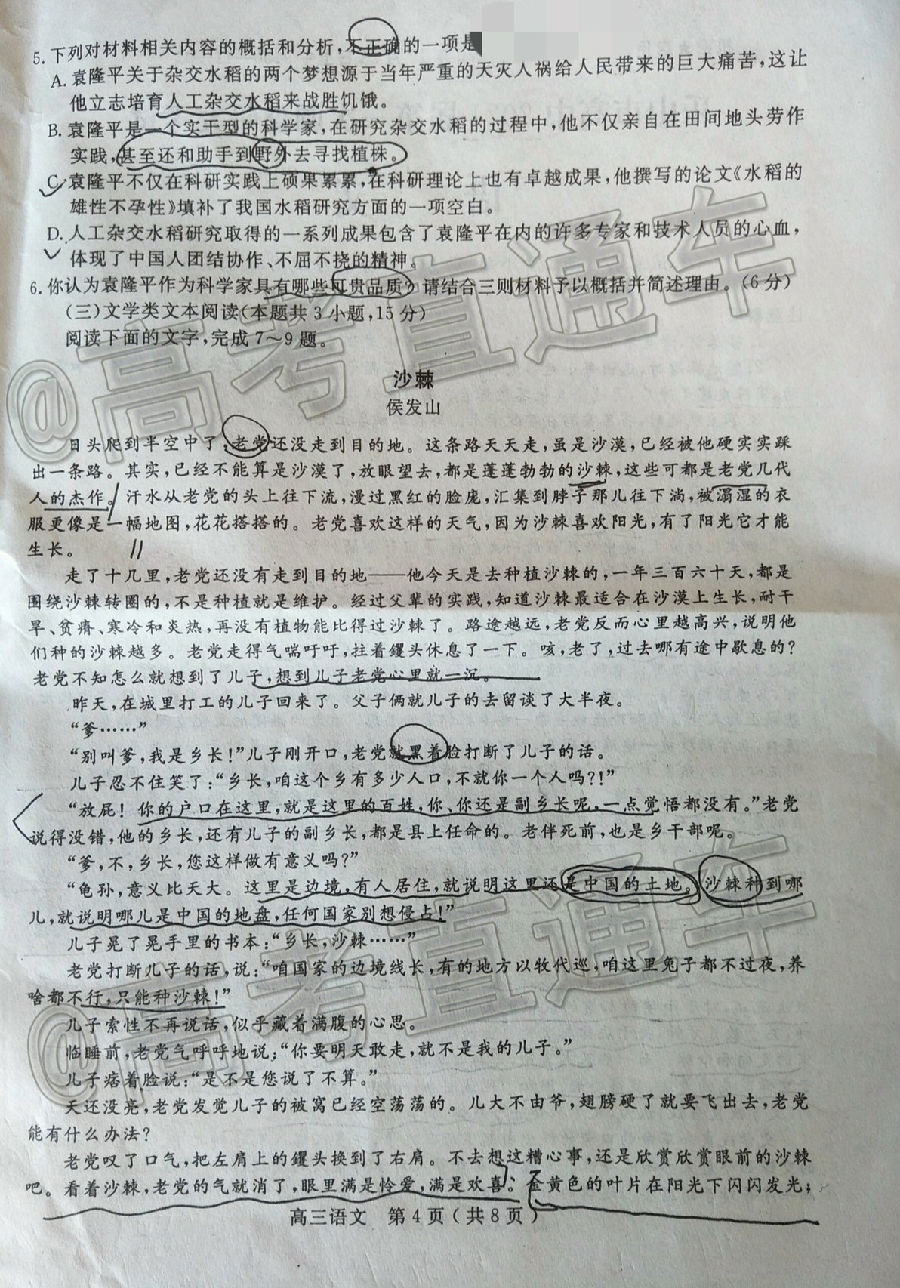 5. 下列对材料相关内容的概括和分析,不正确的一项是
A. 袁隆平关于杂交水稻的两个梦想源于当年严重的天灾人祸给人民带来的巨大痛苦,这让
他立志培育人工杂交水稻来战胜饥饿。
B. 袁隆平是一个实干型的科学家,在研究杂交水稻的过程中,他不仅亲自在田间地头劳作
实践,甚至还和助手到野外去寻找植株。
C. 袁隆平不仅在科研实践上硕果累累,在科研理论上也有卓越成果,他撰写的论文《水稻的
雄性不孕性》填补了我国水稻研究方面的一项空白。
D. 人工杂交水稻研究取得的一系列成果包含了袁隆平在内的许多专家和技术人员的心血,
体现了中国人团结协作、不屈不挠的精神。
6. 你认为袁隆平作为科学家具有哪些可贵品质?请结合三则材料予以概括并简述理由。(6分)
(三)文学类文本阅读(本题共3小题,15分)
阅读下面的文字,完成7~9题。
沙棘
侯发山
日头爬到半空中了,老党还没走到目的地。这条路天天走,虽是沙漠,已经被他硬实实踩
出一条路。其实,已经不能算是沙漠了,放眼望去,都是蓬蓬勃勃的沙棘,这些可都是老党几代
人的杰作。汗水从老党的头上往下流,漫过黑红的脸庞,汇集到脖子那儿往下淌,被溻湿的衣
服更像是一幅地图,花花搭搭的。老党喜欢这样的天气,因为沙棘喜欢阳光,有了阳光它才能
生长。
走了十几里,老党还没有走到目的地——他今天是去种植沙棘的,一年三百六十天,都是
围绕沙棘转圈的,不是种植就是维护。经过父辈的实践,知道沙棘最适合在沙漠上生长,耐干
旱、贫瘠、寒冷和炎热,再没有植物能比得过沙棘了。路途越远,老党反而心里越高兴,说明他
们种的沙棘越多。老党走得气喘吁吁,拄着䦆头休息了一下。咳,老了,过去哪有途中歇息的?
老党不知怎么就想到了儿子,想到儿子老党心里就一沉。
昨天,在城里打工的儿子回来了。父子俩就儿子的去留谈了大半夜。
“爹……”
“别叫爹,我是乡长!”儿子刚开口,老党就黑着脸打断了儿子的话。
儿子忍不住笑了:“乡长,咱这个乡有多少人口,不就你一个人吗?!”
“放屁!你的户口在这里,就是这里的百姓,你、你还是副乡长呢,一点觉悟都没有。”老党
说得没错,他的乡长,还有儿子的副乡长,都是县上任命的。老伴死前,也是乡干部呢。
“爹,不,乡长,您这样做有意义吗?”
“龟孙,意义比天大。这里是边境,有人居住,就说明这里还是中国的土地。沙棘种到哪
儿,就说明哪儿是中国的地盘,任何国家别想侵占!”
儿子晃了晃手里的书本:“乡长,沙棘……”
老党打断儿子的话,说:“咱国家的边境线长,有的地方以牧代巡,咱这里兔子都不过夜,养
啥都不行,只能种沙棘!”
儿子索性不再说话,似乎藏着满腹的心思。
临睡前,老党气呼呼地说:“你要明天敢走,就不是我的儿子。”
儿子痞着脸说:“是不是您说了不算。”
天还没亮,老党发觉儿子的被窝已经空荡荡的。儿大不由爷,翅膀硬了就要飞出去,老党
能有什么办法?
老党叹了口气,把左肩上的䦆头换到了右肩。不去想这糟心事,还是欣赏欣赏眼前的沙棘
吧。看着沙棘,老党的气就消了,眼里满是怜爱,满是欢喜:金黄色的叶片在阳光下闪闪发光;
高三语文 第4页(共8页)
@高考直通车
@高考直通车